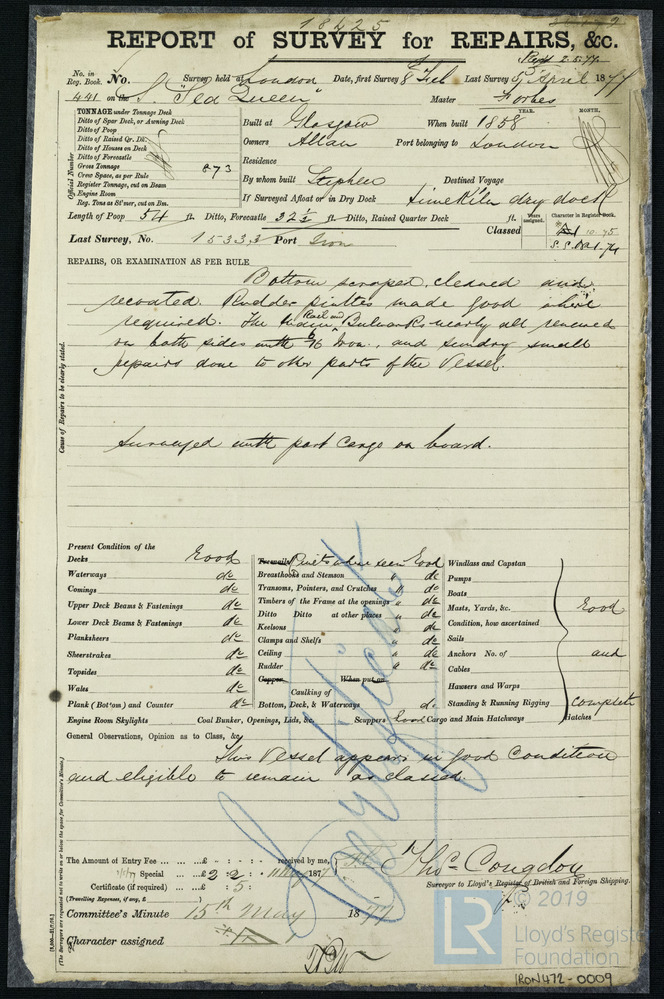 18425
REPORT of SURVEY for REPAIRS, &c.
No. in Reg. Book. No. Survey held at London Date, first Survey 8 Feb Last Survey 5th April 1877
441 on the S "Sea Queen" Master Forbes
TONNAGE under Tonnage Deck
Ditto of Spar Deck, or Awning Deck
Ditto of Poop
Ditto of Raised Qr. Dk.
Ditto of Houses on Deck
Ditto of Forecastle
Gross Tonnage 873
Crew Space, as per Rule
Register Tonnage, cut on Beam
Engine Room
Reg. Tons as St'mer, cut on Bm.
Official Number
YEAR. MONTH.
Built at Glasgow When built 1858
Owners Allan Port belonging to London
Residence
By whom built Stephen Destined Voyage
If Surveyed Afloat or in Dry Dock Limekiln dry dock
Length of Poop 54 ft. Ditto, Forecastle 32½ ft. Ditto, Raised Quarter Deck ft.
Years assigned. Character in Register Book.
Classed A1 10.75
Last Survey, No. 15333 Port Iron
REPAIRS, OR EXAMINATION AS PER RULE
Bottom scraped, cleaned and
recoated. Rudder pintles made good where
required. The Rail and Bulwarks nearly all renewed
on both sides with 6/16 Iron, and sundry small
repairs done to other parts of the Vessel.
Cause of Repairs to be clearly stated.
Surveyed with part cargo on board.
Present Condition of the
Decks Good
Waterways do
Comings do
Upper Deck Beams & Fastenings do
Lower Deck Beams & Fastenings do
Planksheers do
Sheerstrakes do
Topsides do
Wales do
Plank (Bot'om) and Counter do
Engine Room Skylights Coal Bunker, Openings, Lids, &c. Scuppers Good Cargo and Main Hatchways Hatches
Treenails Rivets where seen Good
Breasthooks and Stemson " do
Transoms, Pointers, and Crutches " do
Timbers of the Frame at the openings " do
Ditto Ditto at other places " do
Keelsons " do
Clamps and Shelfs " do
Ceiling " do
Rudder " do
Copper When put on
Caulking of
Bottom, Deck, & Waterways do
Windlass and Capstan
Pumps
Boats
Masts, Yards, &c.
Condition, how ascertained
Sails
Anchors No. of
Cables
Hawsers and Warps
Standing & Running Rigging
Good
and
Complete
General Observations, Opinion as to Class, &c
This Vessel appears in good condition
and eligible to remain as classed.
Certificate
The Amount of Entry Fee ... ... £ : : received by me,
Special ... £ 2 : 2 : 1877
Certificate (if required) ... £ : 5 :
(Travelling Expenses, if any, £ )
Thos. Congdon
Surveyor to Lloyd's Register of British and Foreign Shipping.
Committee's Minute 15th May 1877
Character assigned
(The Surveyors are requested not to write on or below the space for Committee's Minute.)
© 2019
LR
Lloyd's Register
Foundation
IRON472-0009